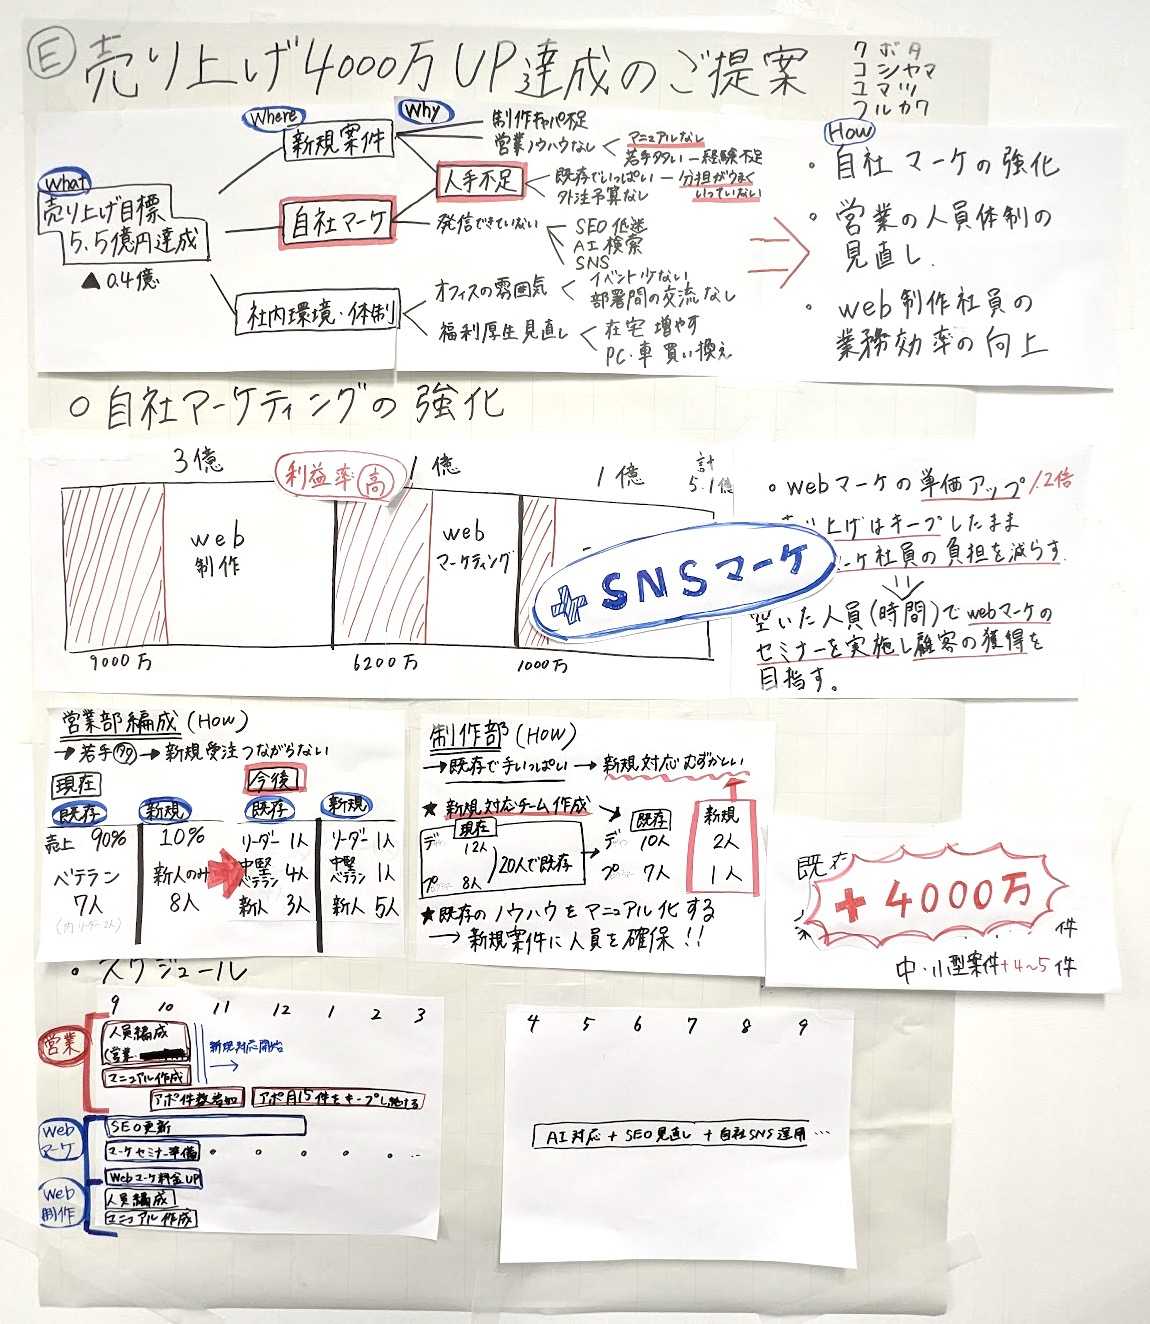 E 売り上げ4000万UP達成のご提案
クボタ
コシヤマ
ユマツ
フルカワ
What
売り上げ目標
5.5億円達成
▲0.4億
Where
新規案件
自社マーケ
社内環境・体制
Why
制作キャパ不足
営業ノウハウなし
マニュアルなし
若手多い―経験不足
人手不足
既存でいっぱい―分担がうまく
いっていない
外注予算なし
発信できていない
SEO低迷
AI検索
SNS
オフィスの雰囲気
イベント少ない
部署間の交流なし
福利厚生見直し
在宅増やす
PC・車買い換え
How
・自社マーケの強化
・営業の人員体制の
見直し.
・web制作社員の
業務効率の向上
○自社マーケティングの強化
3億
利益率高
1億
1億
計
5.1億
web
制作
web
マーケティング
+SNSマーケ
9000万
6200万
1000万
・webマーケの単価アップ1.2倍
り上げはキープしたまま
ーケ社員の負担を減らす.
空いた人員(時間)でwebマーケの
セミナーを実施し顧客の獲得を
目指す。
営業部編成(HOW)
→若手多→新規受注つながらない
現在
既存 新規
売上 90% 10%
ベテラン 新人のみ
7人 8人
今後
既存 新規
リーダー 1人 リーダー 1人
中堅
ベテラン 4人 中堅
ベテラン 1人
新人 3人 新人 5人
制作部(HOW)
→既存で手いっぱい→新規対応むずかしい
★新規対応チーム作成
現在
デ 12人
プ 8人
20人で既存
既存
デ 10人
プ 7人
新規
2人
1人
★既存のノウハウをマニュアル化する
→新規案件に人員を確保!!
既存
+4000万
件
中・小型案件+4~5件
・スケジュール
9 10 11 12 1 2 3
営業
人員編成
(営業・
新規対応開始
→
マニュアル作成
アポ件数増加
アポ月15件をキープし続ける
Web
マーケ
SEO更新
マーケセミナー準備
Webマーケ料金UP
Web
制作
人員編成
マニュアル作成
4 5 6 7 8 9
AI対応+SEO見直し+自社SNS運用…